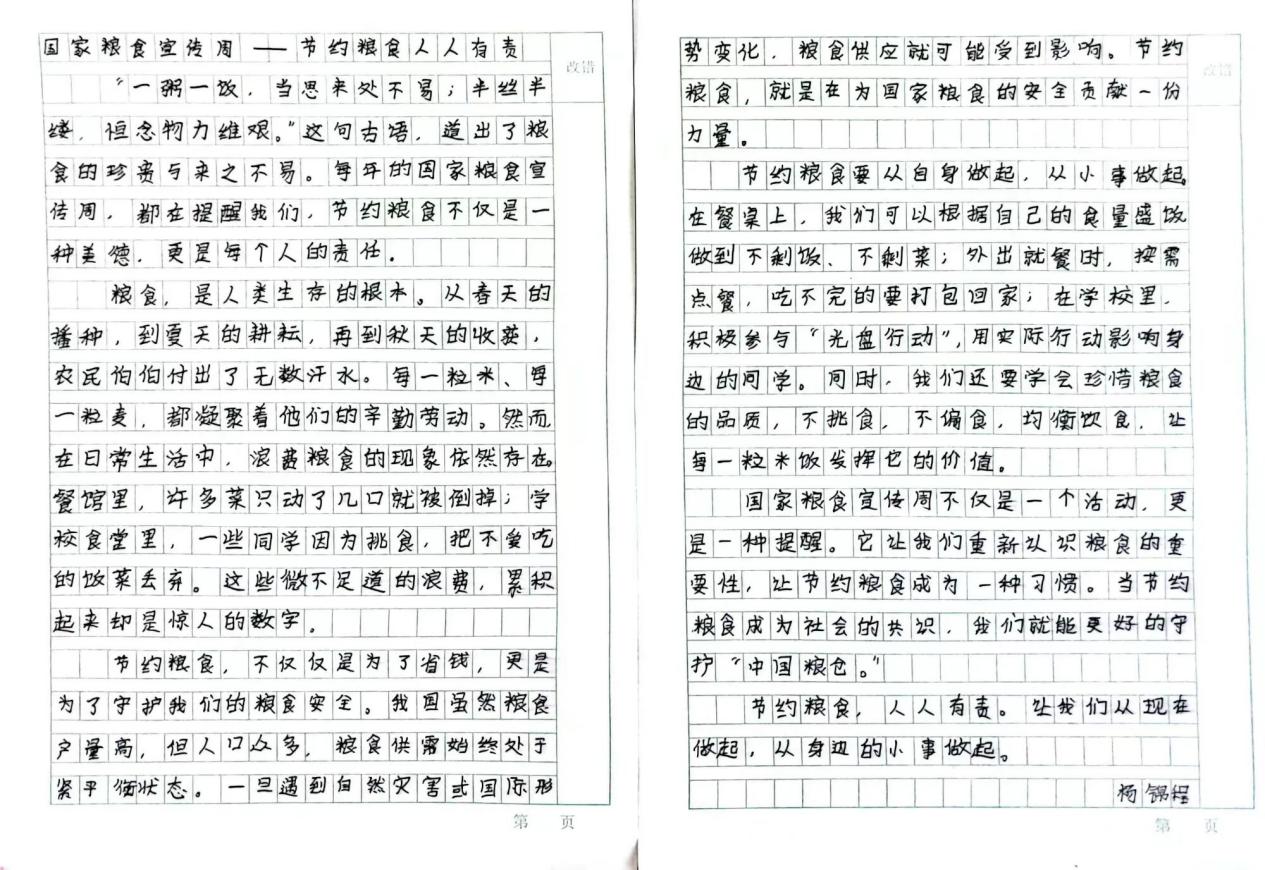 国家粮食宣传周——节约粮食人人有责
改错
“一粥一饭，当思来处不易；半丝半
缕，恒念物力维艰。”这句古语，道出了粮
食的珍贵与来之不易。每年的国家粮食宣
传周，都在提醒我们，节约粮食不仅是一
种美德，更是每个人的责任。
粮食，是人类生存的根本。从春天的
播种，到夏天的耕耘，再到秋天的收获，
农民伯伯付出了无数汗水。每一粒米、每
一粒麦，都凝聚着他们的辛勤劳动。然而
在日常生活中，浪费粮食的现象依然存在。
餐馆里，许多菜只动了几口就被倒掉；学
校食堂里，一些同学因为挑食，把不爱吃
的饭菜丢弃。这些微不足道的浪费，累积
起来却是惊人的数字。
节约粮食，不仅仅是为了省钱，更是
为了守护我们的粮食安全。我国虽然粮食
产量高，但人口众多，粮食供需始终处于
紧平衡状态。一旦遇到自然灾害或国际形
第 页
势变化，粮食供应就可能受到影响。节约
改错
粮食，就是在为国家粮食的安全贡献一份
力量。
节约粮食要从自身做起，从小事做起。
在餐桌上，我们可以根据自己的食量盛饭
做到不剩饭、不剩菜；外出就餐时，按需
点餐，吃不完的要打包回家；在学校里，
积极参与“光盘行动”，用实际行动影响身
边的同学。同时，我们还要学会珍惜粮食
的品质，不挑食，不偏食，均衡饮食，让
每一粒米饭发挥它的价值。
国家粮食宣传周不仅是一个活动，更
是一种提醒。它让我们重新认识粮食的重
要性，让节约粮食成为一种习惯。当节约
粮食成为社会的共识，我们就能更好的守
护“中国粮仓。”
节约粮食，人人有责。让我们从现在
做起，从身边的小事做起。
杨锦程
第 页